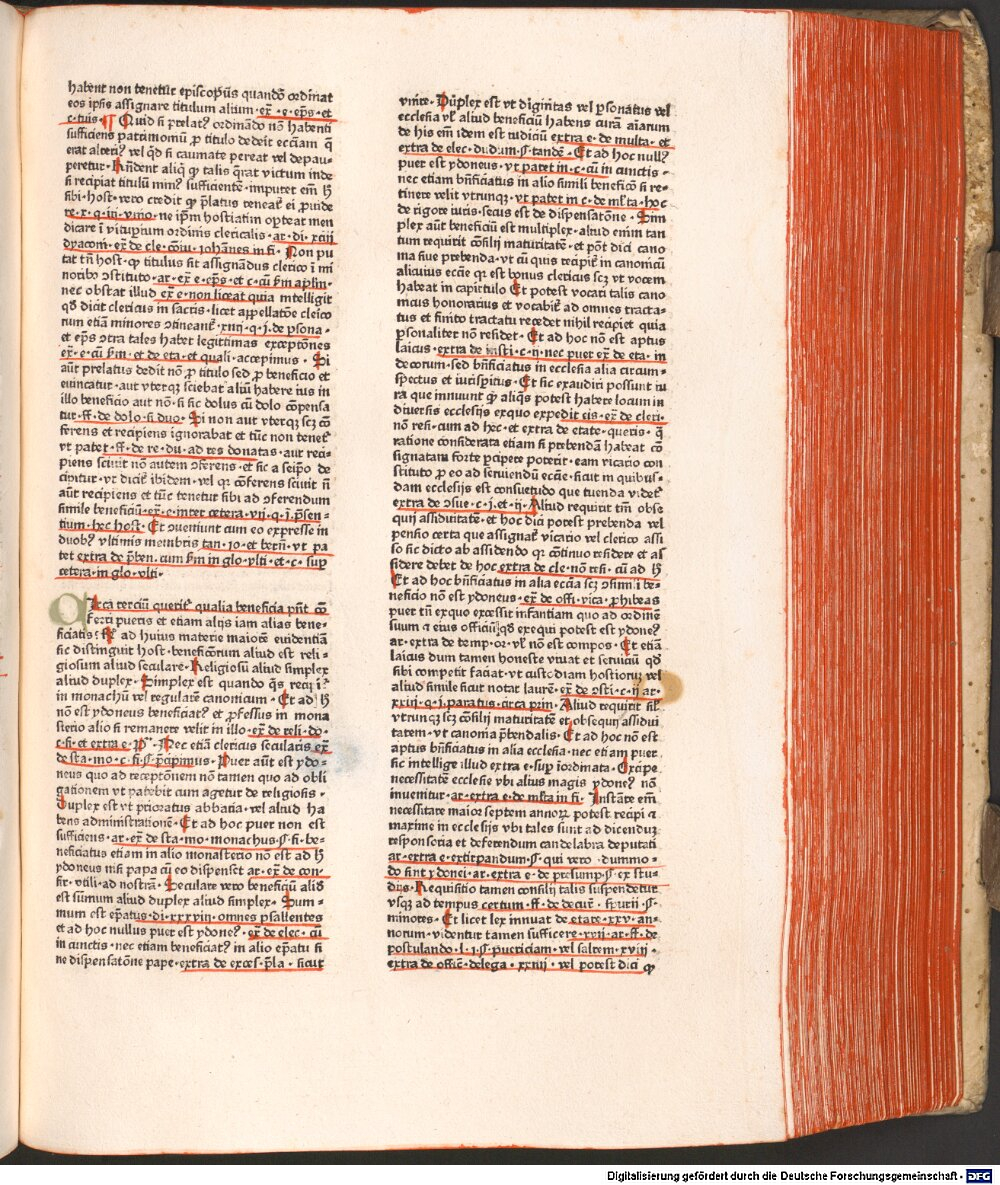 habent non tenetur episcopus quando ordinat
eos ipsis assignare titulum alium · ex̄ · e · ep̄s · et
c · tuis · ¶ Quid si prelatꝰ ordinādo nō habenti
sufficiens patrimoniū ꝓ titulo dedeit eccīam q̄
erat alteriꝰ vel qd̄ si caumate pereat vel depau-
peretur · Rn̄dent aliq̄ ꝙ talis q̄rat victum inde
si recipiat titulū minꝰ sufficientē · imputet em̄ h̄
sibi · host · vero credit ꝙ p̄latus teneat̄ ei ꝓuide
re · x · q · iii · vnio · ne ip̄m hostiatim oꝑteat men
dicare ī vituꝑium ordinis clericalis · ar · di · xciii
dyaconi · ex̄ de cle · cōiu · iohānes in fi · Non pu
tat tn̄ host · ꝙ titulus sit assignādus clerico ī mi
noribꝰ ↄstituto · ar · ex̄ e · ep̄s · et c · cū s̄m apl̄m ·
nec obstat illud ex̄ e · non liceat quia intelligit
qd̄ dicit clericus in sacris · licet appellatōne cleico
rum etiā minores ↄtineant̄ · xiiii · q · i · de ꝑsona ·
et ep̄s ↄtra tales habet legittimas exceptōnes
ex̄ · e · cū s̄m · et de eta · et quali · accepimus · Si
aūt prelatus dedit nō ꝓ titulo sed ꝓ beneficio et
euincatur · aut vterqꝫ sciebat aliū habere ius in
illo beneficio aut nō · si sic dolus cū dolo cōpensa
tur · ff · de dolo · si duo · Si non aut vterqꝫ scꝫ cō
ferens et recipiens ignorabat et tūc non tenet̄
vt patet · ff · de re · du · ad res donatas · aut reci-
piens sciuit nō autem ↄferens · et sic a seip̄o de
cipitur · vt dicit̄ ibidem · vel qꝛ cōferens sciuit n̄
aūt recipiens et tūc tenetur sibi ad ↄferendum
simile beneficiū · ex̄ · e · inter cetera · vii · q · i · p̄sen-
tium · hec host · Et ↄueniunt cum eo expresse in
duobꝰ vltimis membris tan · io · et bern̄ · vt pa
tet extra de p̄ben · cum s̄m in glo · vlti · et · c · suꝑ
cetera · in glo · vlti ·
Circa terciū querit̄ qualia beneficia pn̄t cō
ferri pueris et etiam alijs iam alias bene-
ficiatis · ad huius materie maiorē euidentiā
sic distinguit host · beneficiorum aliud est reli-
giosum aliud seculare · Religiosū aliud simplex
aliud duplex · Simplex est quando q̄s recipit̄
in monachū vel regularē canonicum · Et ad h̄
nō est ydoneus beneficiatꝰ et ꝓfessus in mona
sterio alio si remanere velit in illo · ex̄ de reli · do ·
c · fi · et extra e · Nec etiā clericus secularis ex̄
de sta · mo · c · fi · § p̄cipimus · Puer aūt est ydo-
neus quo ad receptōnem nō tamen quo ad obli
gationem vt patebit cum agetur de religiosis ·
Duplex est vt prioratus abbatia · vel aliud ha
bens administrationē · Et ad hoc puer non est
sufficiens · ar · ex̄ de sta · mo · monachus · § fi · be-
neficiatus etiam in alio monasterio nō est ad h̄
ydoneus nisi papa cū eo dispenset ar · ex̄ de con
fir · vtili · ad nostrā · Seculare vero beneficiū alid̄
est sūmum aliud duplex aliud simplex · Sum-
mum est ep̄atus · di · xxxviii · omnes psallentes
et ad hoc nullus puer est ydoneꝰ · ex̄ de elec · cū
in cunctis · nec etiam beneficiatꝰ in alio ep̄atu si
ne dispensatōne pape · extra de exces · p̄la · sicut
vnire · Duplex est vt dignitas vel ꝑsonatus vel
ecclesia vl̄ aliud beneficiū habens curā aīarum
de his em̄ idem est iudiciū extra e · de multa · et
extra de elec · dudum · § · tandē · Et ad hoc nullꝰ
puer est ydoneus · vt patet in · c · cū in cunctis ·
nec etiam bn̄ficiatus in alio simili beneficō si re-
tinere velit vtrunqꝫ · vt patet in c · de ml̄ta · hoc
de rigore iuris · secus est de dispensatōne · Sim
plex aūt beneficiū est multiplex · aliud enim tan
tum requirit cōsilij maturitatē · et pōt dici cano
nia siue prebenda · vt cū quis recipit̄ in canonicū
alicuius eccīe qꝛ est bonus clericus scꝫ vt vocem
habeat in capitulo Et potest vocari talis cano
nicus honorarius et vocabit̄ ad omnes tracta-
tus et finito tractatu recedet nihil recipiet quia
ꝑsonaliter non residet · Et ad hoc nō est aptus
laicus · extra de insti · c · ii · nec puer ex̄ de eta · in
decorum · sed bn̄ficiatus in ecclesia alia circum-
spectus et iurisꝑitus · Et sic exaudiri possunt iu
ra que innuunt ꝙ aliqs potest habere locum in
diuersis ecclesijs exquo expedit eis · ex̄ de cleri ·
nō resi · cum ad hec · et extra de etate · queris · q̄
ratione considerata etiam si prebendā habeat cō
signatam forte ꝑcipere poterit · eam vicario con
stituto ꝓ eo ad seruiendū eccīe · sicut in quibus-
dam ecclesijs est consuetudo que tuenda videt̄
extra de ↄsue · c · i · et · ii · Aliud requirit tm̄ obse
quij assiduitatē · et hoc dici potest prebenda vel
pensio certa que assignat̄ vicario vel clerico assi
so sic dicto ab assidendo qꝛ cōtinuo residere et as
sidere debet de hoc extra de cle · nō resi · cū ad h̄
Et ad hoc bn̄ficiatus in alia eccīa scꝫ ↄsimili be-
neficio nō est ydoneus · ex̄ de offi · vica · ꝓhibeas
puer tn̄ exquo excessit infantiam quo ad ordinē
suum et eius officiū qd̄ exequi potest est ydoneꝰ
ar · extra de temp · or · vl̄ nō est compos · Et etiā
laicus dum tamen honeste viuat et seruiciū qd̄
sibi competit faciat · vt custodiam hostiorū vel
aliud simile sicut notat laurē · ex̄ de ↄsti · c · ii · ar ·
xxiii · q · i · paratus · circa prin · Aliud requirit sil̄
vtrunqꝫ scꝫ cōsilij maturitatē et obsequij assidui
tatem · vt canonia p̄bendalis · Et ad hoc nō est
aptus bn̄ficiatus in alia ecclesia · nec etiam puer
sic intellige illud extra e · suꝑ īordinata · Excipe
necessitatē ecclesie vbi alius magis ydoneꝰ nō
inuenitur · ar · extra e · de ml̄ta in fi · Instāte em̄
necessitate maior septem annoꝝ potest recipi ⁊
maxime in ecclesijs vbi tales sunt ad dicenduꝫ
responsoria et deferendum candelabra deputati
ar · extra e · extirpandum · § · qui vero · dummo ·
do sint ydonei · ar · extra e · de presump · § · ex stu ·
dijs · Requisitio tamen consilij talis suspendetur
vsqꝫ ad tempus certum · ff · de decur̄ · spurij · §
minores · Et licet lex innuat de etate · xxv · an-
norum · videntur tamen sufficere · xvii · ar · ff · de
postulando · l · i · § · puericiam · vel saltem · xviii ·
extra de offic̄ · delega · xxiiii · vel potest dici ꝙ
Digitalisierung gefördert durch die Deutsche Forschungsgemeinschaft · DFG